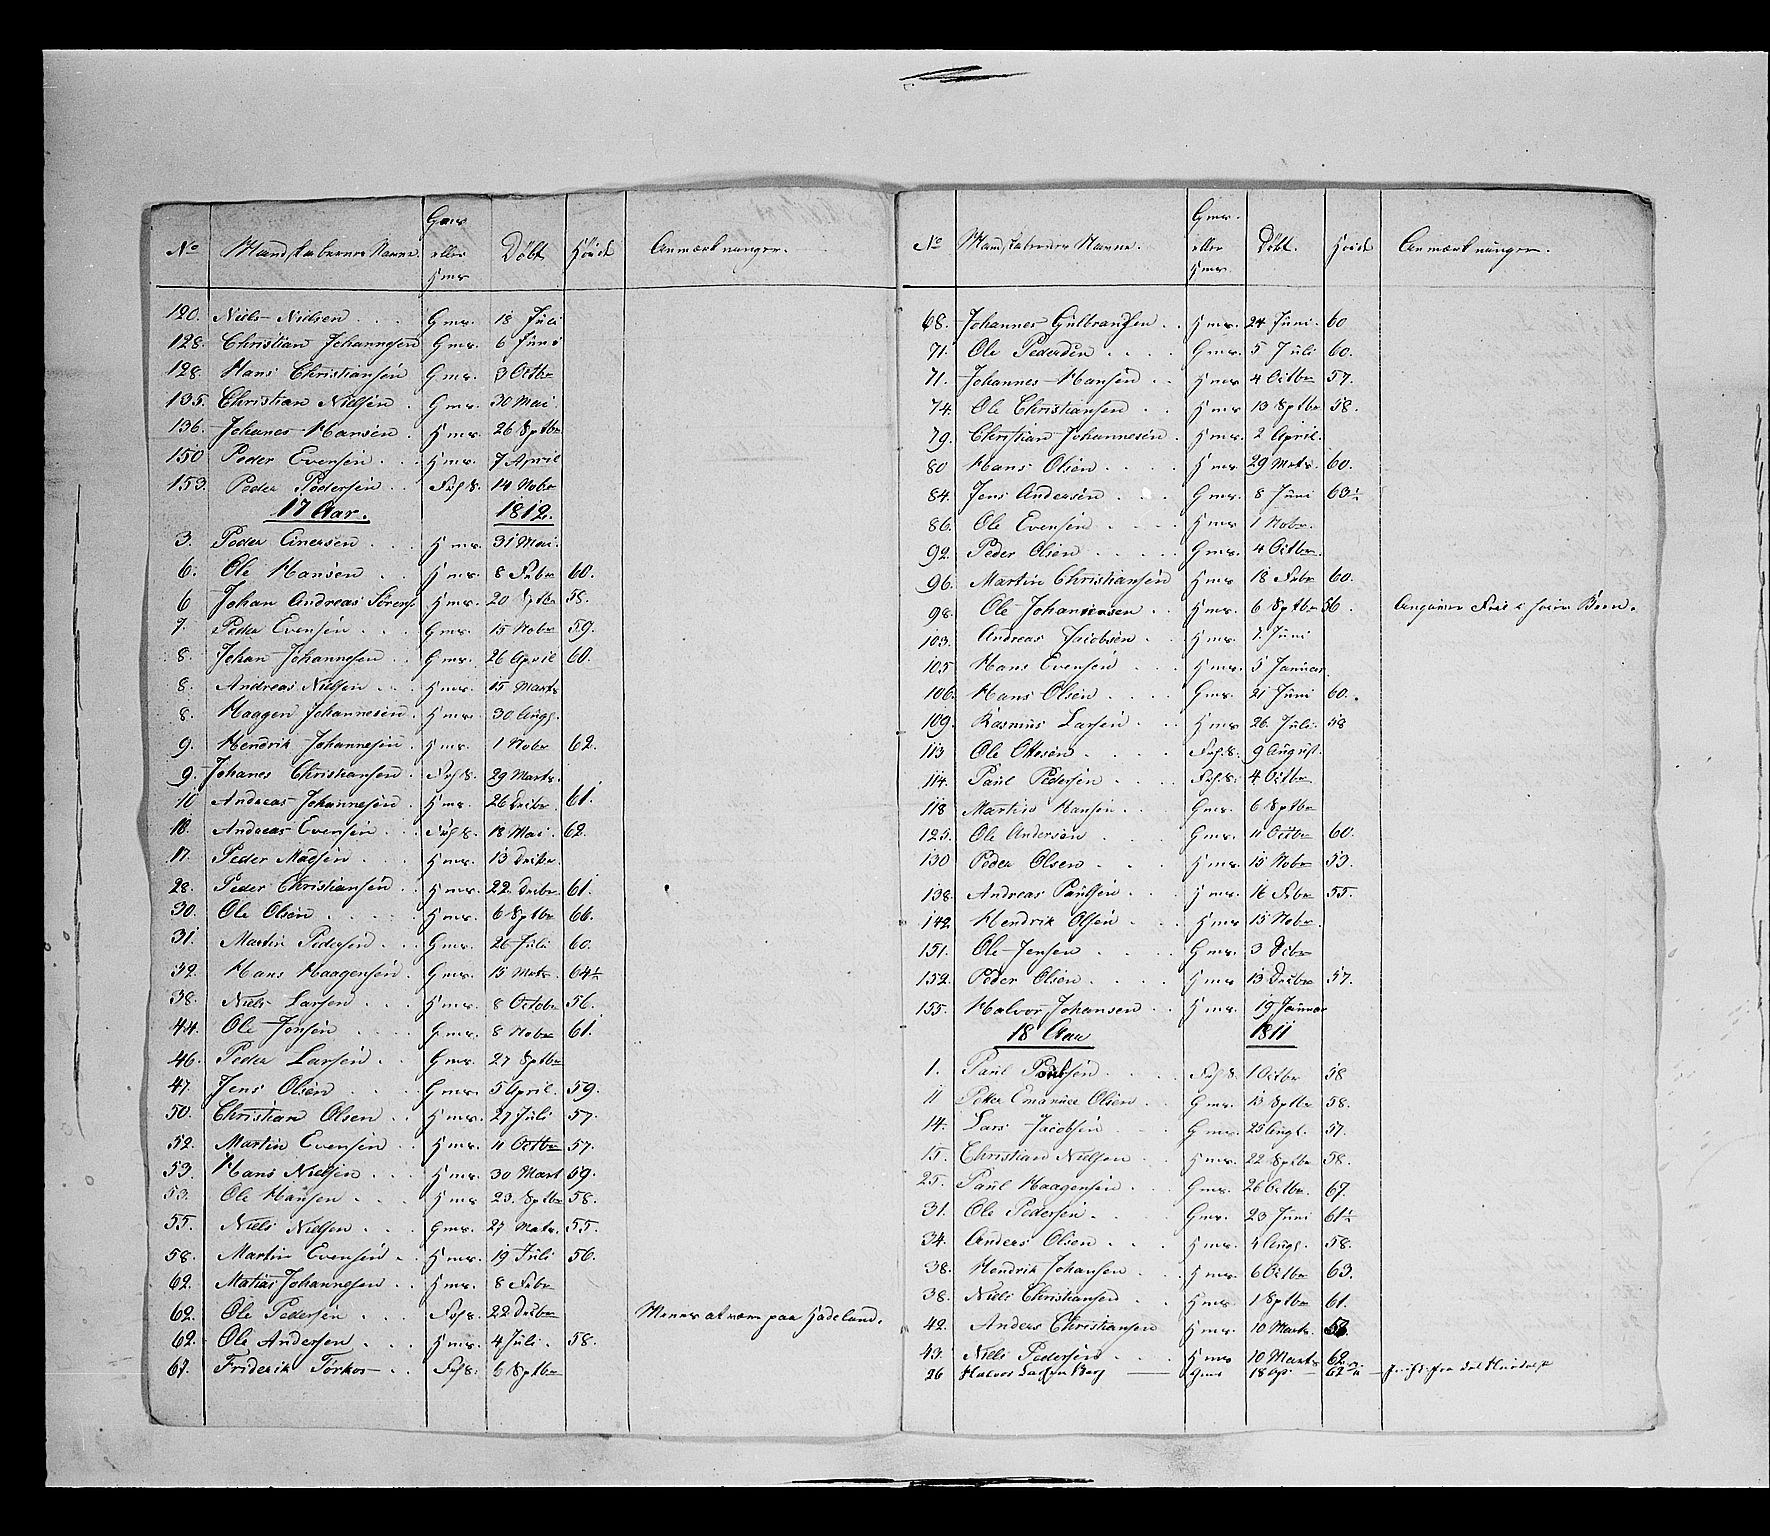 No Mandskabernes Navne. Gmr eller Hmr Døbt Høide Anmærkninger.
120. Niels Nielsen Gmr. 18 Juli
128. Christian Johannesen Gmr. 6 Juni
128. Hans Christiansen Gmr. 3 Octbr
135. Christian Nielsen Gmr. 30 Mai.
136. Johanes Hansen Hmr. 26 Sptbr
150 Peder Evensen Hmr. 7 April
153. Peder Pedersen 14 Nobr
17 Aar. 1812.
3. Peder Einersen Hmr. 31 Mai.
6. Ole Hansen Hmr. 8 Febr 60.
6 Johan Andreas Sørens Hmr. 20 Sptbr 58.
7. Peder Evensen Gmr. 15 Nobr 59.
8. Johan Johannesen Gmr. 26 April 60.
8. Andreas Nielsen Hmr. 15 Marts
8. Haagen Johannesen Hmr. 30 Augs.
9. Hendrik Johannesen Hmr. 1 Nobr 62.
9. Johanes Christiansen 29 Marts.
10 Andreas Johannesen Hmr. 26 Decbr 61.
18. Andreas Evensen 18 Mai. 62.
17. Peder Madsen Hmr. 13 Decbr.
28. Peder Christiansen Hmr. 22 Decbr 61.
30. Ole Olsen Hmr. 6 Sptbr 66.
31. Martin Pedersen Gmr. 26 Juli 60.
32. Hans Haagensen Gmr. 15 Mats. 64½
38. Niels Larsen Hmr. 8 Octobr 56.
44. Ole Jonsen Gmr. 8 Nobr 61.
46. Peder Larsen Gmr. 27 Sptbr
47. Jens Olsen Gmr. 5 April. 59.
50. Christian Olsen Hmr. 27 Juli 57.
52. Martin Evensen Hmr. 11 Octbr 57.
53. Hans Nielsen Hmr. 30 Mart 59.
53. Ole Hansen Hmr 23. Sptbr 58.
55. Niels Nielsen Gmr. 27 Mats. 55.
58. Martin Evensen Hmr. 19 Juli 56.
62. Matias Johannesen Hmr. 8 Febr
62. Ole Pedersen 22 Decbr Menes at være paa Hadeland.
62. Ole Andersen Hmr. 4 Juli. 58.
67. Friderik Torkos 6 Sptbr
No Mandskabernes Navne. Gmr. eller Hmr. Døbt. Høide Anmærkninger.
68. Johannes Gulbransen Hmr. 24 Juni. 60
71. Ole Pedersen Gmr. 5 Juli 60.
71. Johannes Hansen Hmr 4 Octbr 57.
74. Ole Christiansen Hmr 13 Sptbr 58.
79. Christian Johannesen Hmr. 2 April.
80 Hans Olsen Hmr 29 Mats. 60.
84. Jens Andersen Gmr. 8 Juni 63½
86. Ole Evensen Hmr 1 Nobr.
92. Peder Olsen Gmr. 4 Octbr.
96. Martin Christiansen Hmr 18 Febr. 60.
98. Ole Johannesen Hmr. 6 Sptbr 56. Angiver Feil i sine Been.
103. Andreas Jacobsen Hmr. 7. Juni
105 Hans Evensen Hmr. 5 Januar.
106. Hans Olsen Gmr. 21 Juni 60.
109. Rasmus Larsen Hmr 26. Juli. 58
113 Ole Ottesen 9 August.
114. Paul Pedersen 4 Octbr
118 Martin Hansen Gmr. 6 Sptbr
125. Ole Andersen Gmr. 11 Octbr 60.
130 Peder Olsen Hmr. 15 Nobr 53.
138. Andreas Paulsen Hmr. 16 Febr 55.
142 Hendrik Olsen Hmr 15 Nobr.
151. Ole Jensen Gmr. 3 Dcbr
152. Peder Olsen Hmr 13 Decbr 57.
155. Halvor Johansen Hmr. 19 Januar
18 Aar 1811
1. Paul Poulsen 1 Octbr 58
11 Peter Emanuel Olsen Gmr. 13 Sptbr 58.
14. Lars Jacobsen Gmr. 25 Augs. 57.
15. Christian Nielsen Hmr. 22 Sptbr 58.
25. Paul Haagensen Gmr. 26 Octbr. 67.
31. Ole Pedersen Gmr. 23 Juni 61½
34. Anders Olsen Hmr. 4 Augs. 58.
38. Hendrik Johansen Hmr. 6 Octbr 63.
38. Niels Christiansen Hmr. 1 Sptbr 61.
42. Anders Christiansen Hmr. 10 Marts.
43. Niels Pedersen Hmr 10 Marts 62
26 Halvor Larsen Berg Gmr 18 Ap 62